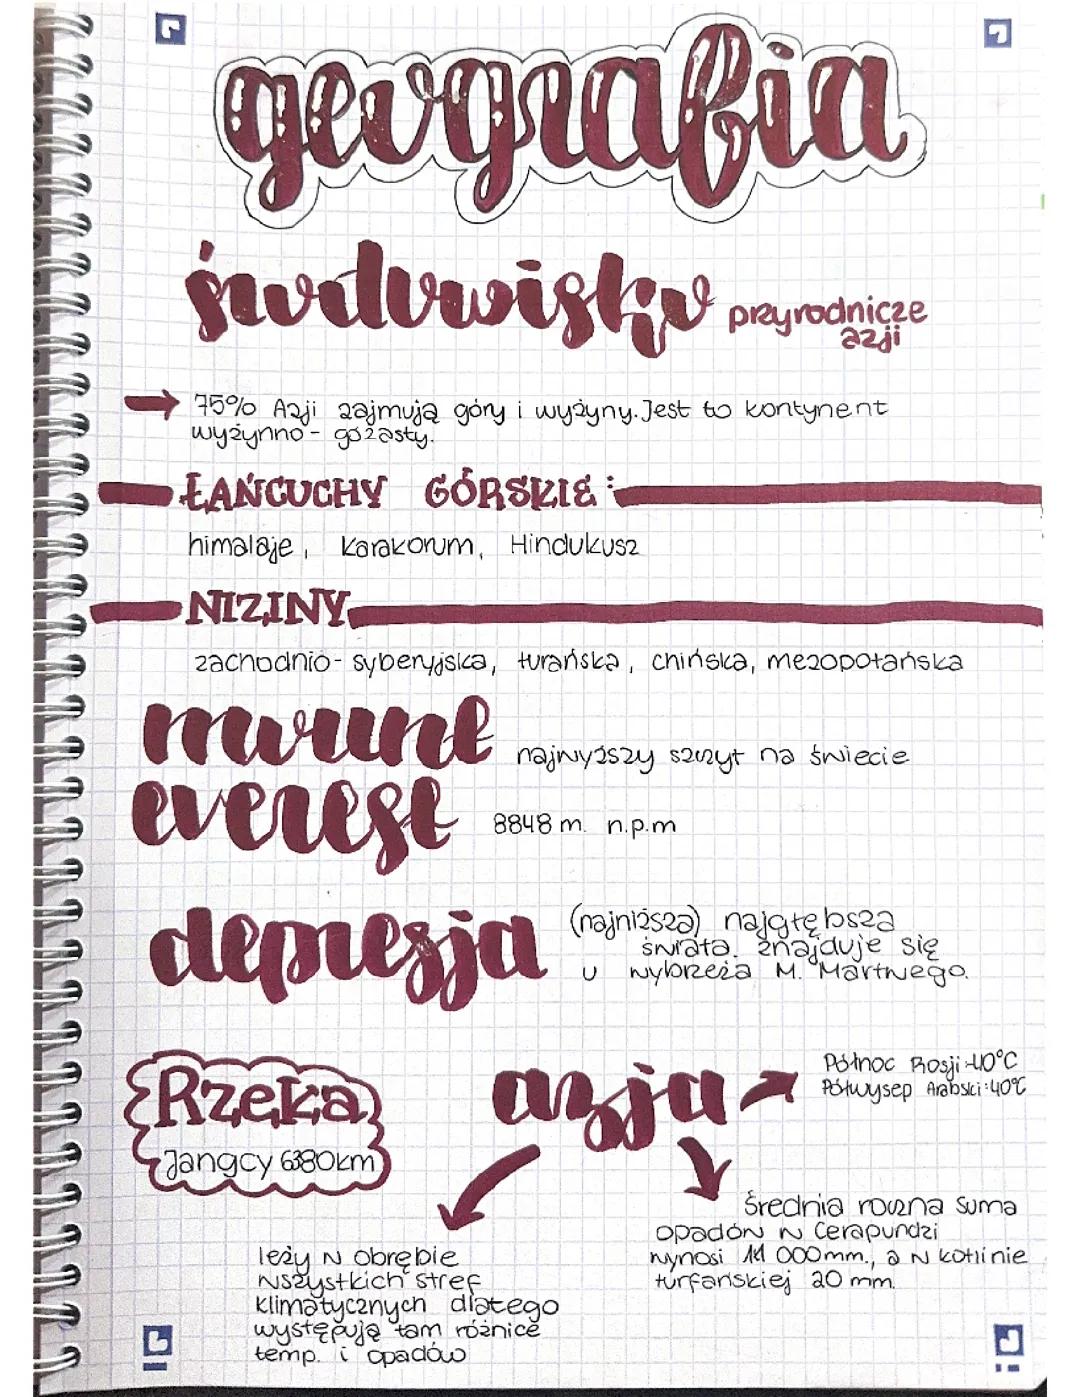 geografia
środowisko przyrodnicze
azji
75% Azji zajmują góry i wyżyny. Jest to kontynent
wyżynno - górzasty.
ŁAŃCUCHY GÓRSKIE:
himalaje, Karakorum, Hindukusz
NIZINY
zachodnio- syberyjska, turańska, chińska, mezopotańska
mount
everest
najwyższy szczyt na świecie
8848 m. n.p.m
depresja
(najniższa) najgłębsza
świata. znajduje się
u wybrzeża M. Martwego.
Rzeka
Jangcy 6380km
azja
Północ Rosji -40°C
Półwysep Arabski: 40°C
leży w obrębie
wszystkich stref
klimatycznych dlatego
występują tam różnice
temp. i opadów
Średnia roczna suma
opadów w Cerapundżi
wynosi 000mm., a w kotlinie
turfańskiej 20 mm.